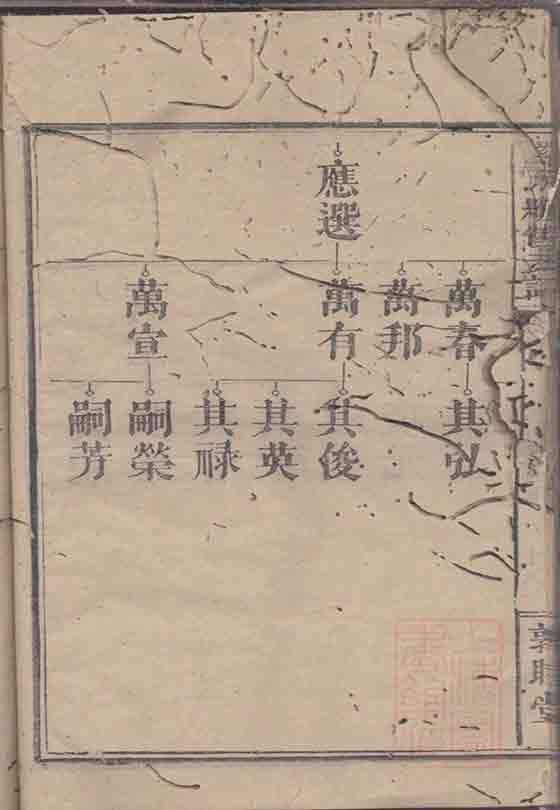 應選
萬春
萬邦
萬有
萬宣
其弘
其俊
其英
其祿
嗣榮
嗣芳
敦睦堂